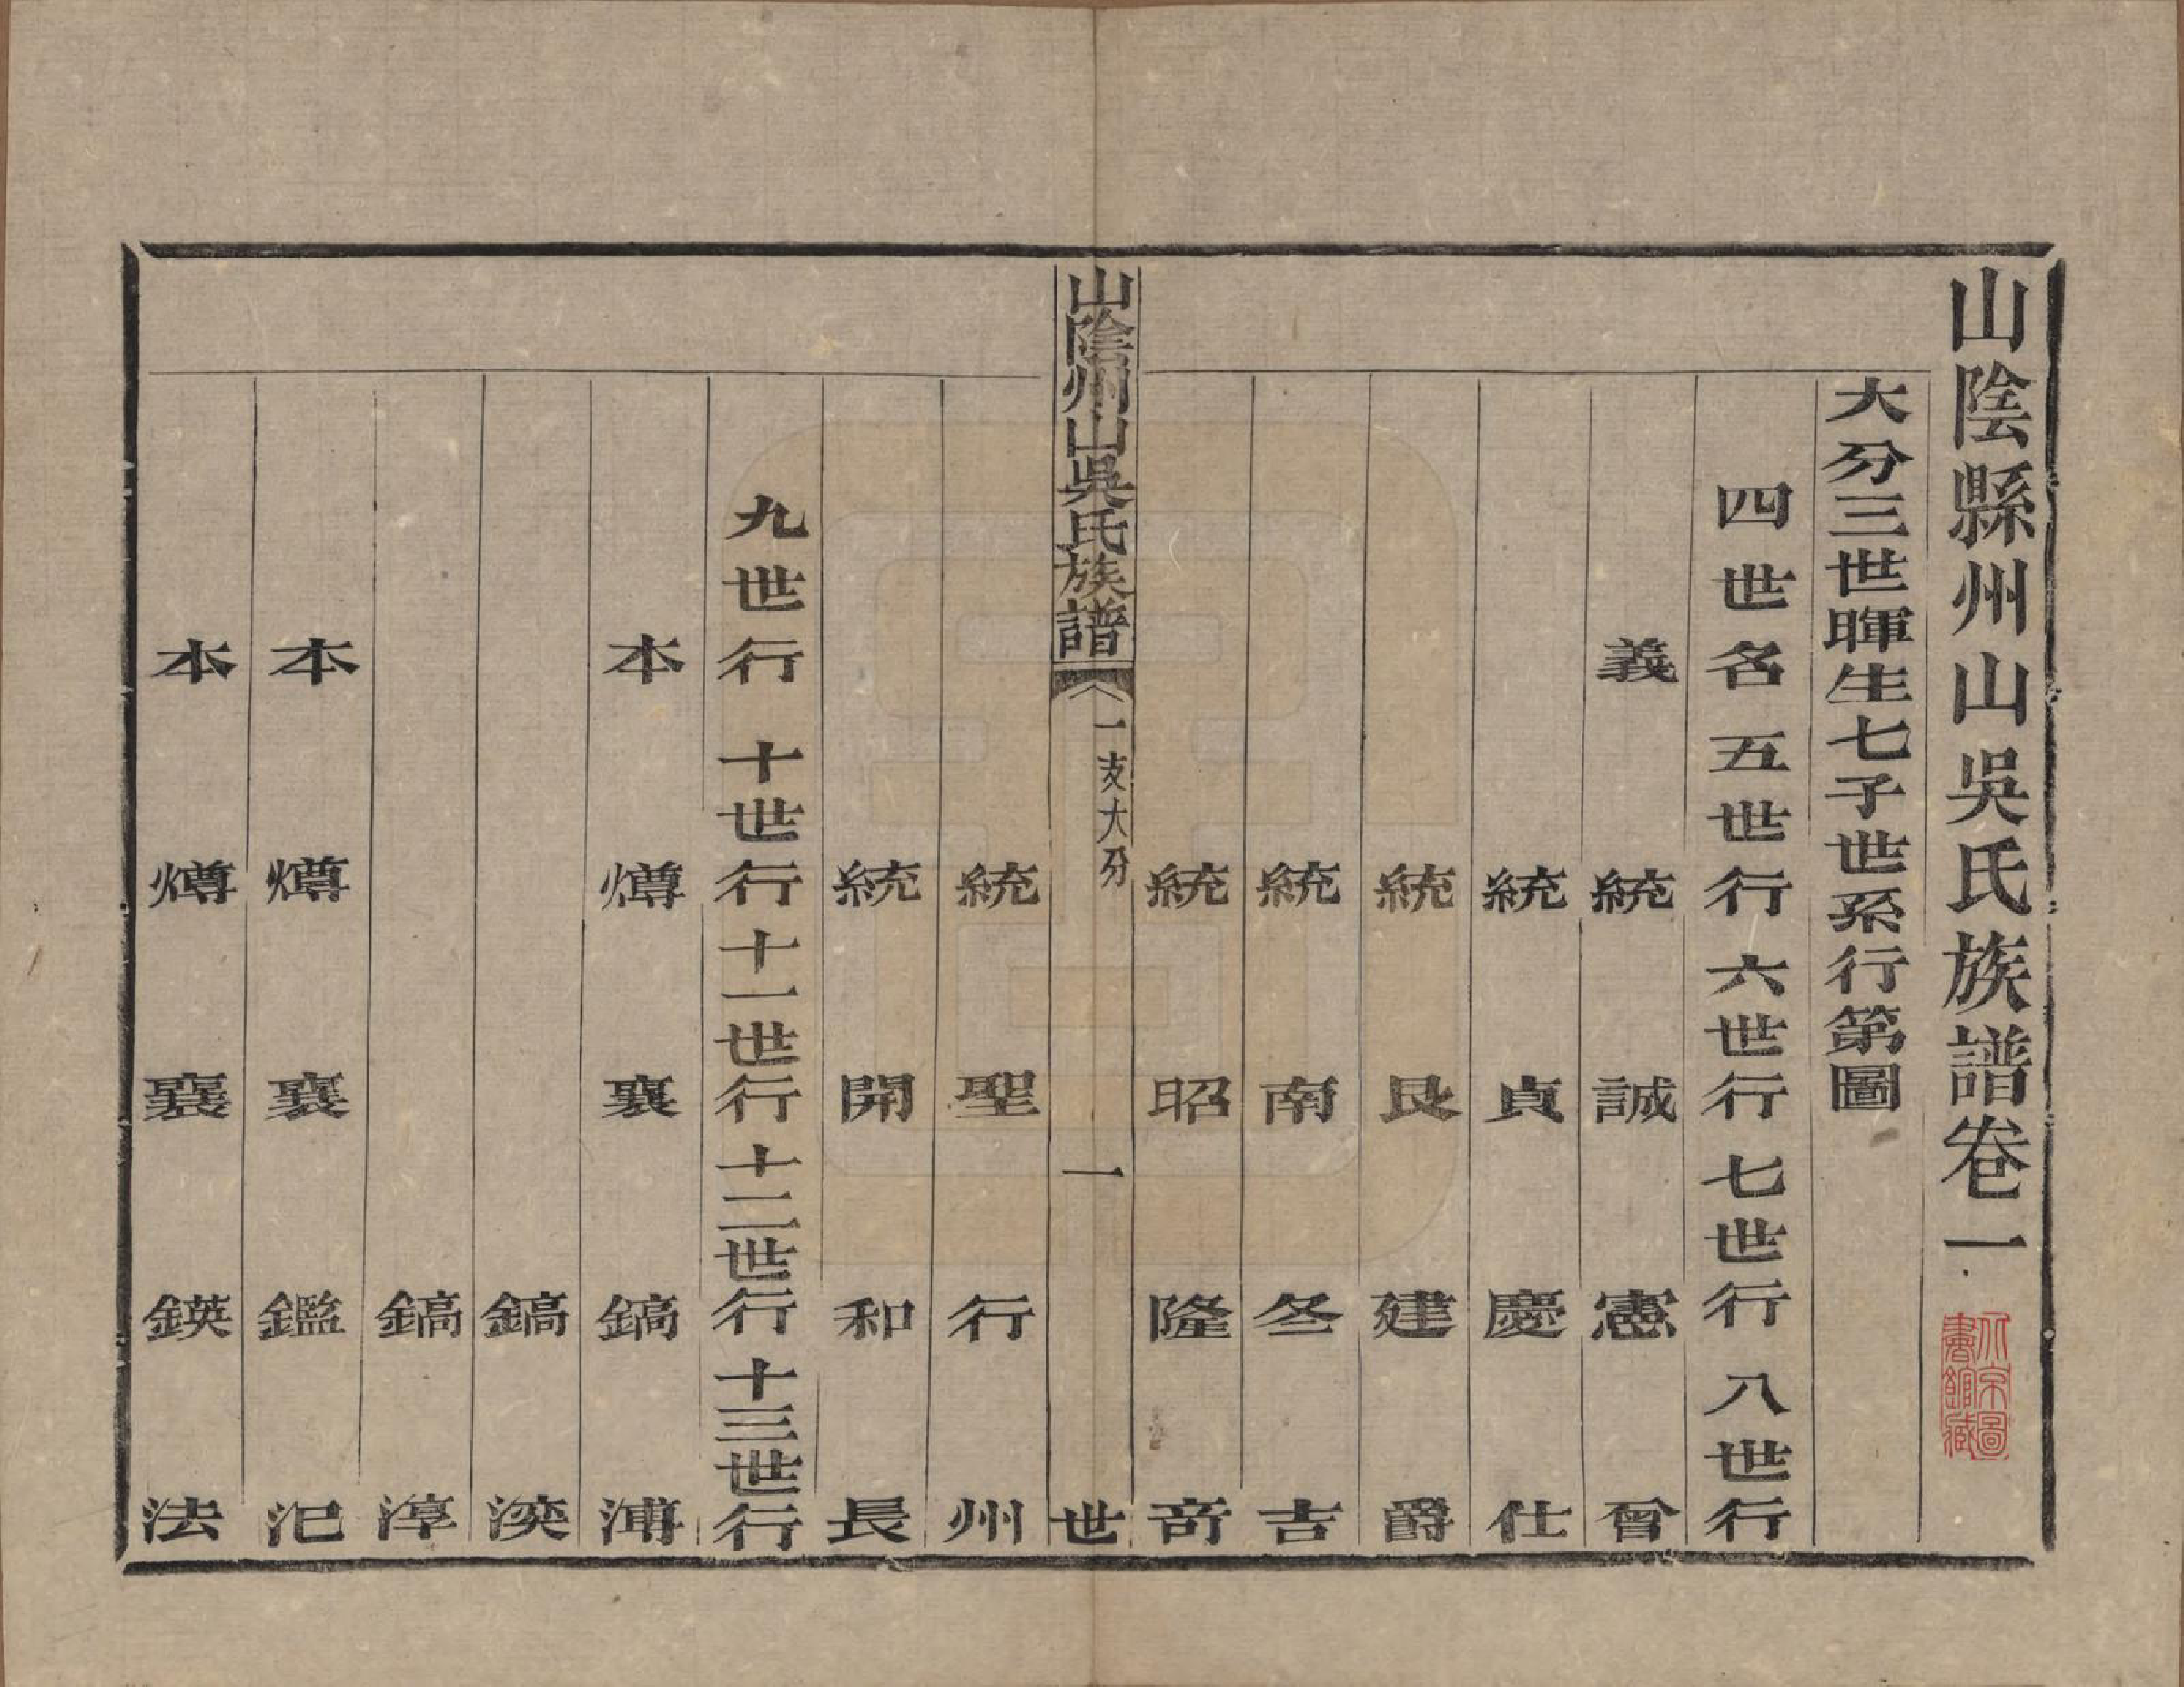 山陰縣州山吳氏族譜卷一
北京圖書館藏
大分三世暉生七子世系行第圖
四世名 五世行 六世行 七世行 八世行
義 統 誠 憲 曾
統 貞 慶 仕
統 艮 建 爵
統 南 冬 吉
統 昭 隆 奇
山陰州山吳氏族譜 一支大分 一 世
統 聖 行 州
統 開 和 長
九世行 十世行 十一世行 十二世行 十三世行
本 燇 襄 鎬 溥
鎬 湙
鎬 淳
本 燇 襄 鑑 汜
本 燇 襄 鍈 法